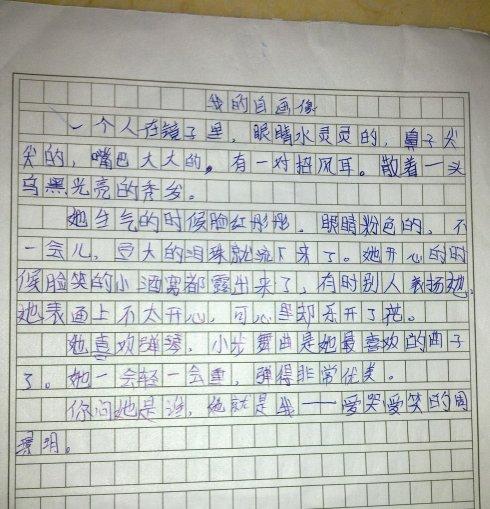 我的自画像
一个人在镜子里，眼睛水灵灵的，鼻子尖
尖的，嘴巴大大的。有一对招风耳。散着一头
乌黑光亮的秀发。
她生气的时候脸红彤彤，眼睛粉色的，不
一会儿，豆大的泪珠就流下来了。她开心的时
候脸笑的小酒窝都露出来了，有时别人表扬她，
她表面上不太开心，可心里却乐开了花。
她喜欢弹琴，小步舞曲是她最喜欢的曲子
了。她一会轻一会重，弹得非常优美。
你问她是谁，她就是我——爱哭爱笑的周
明。